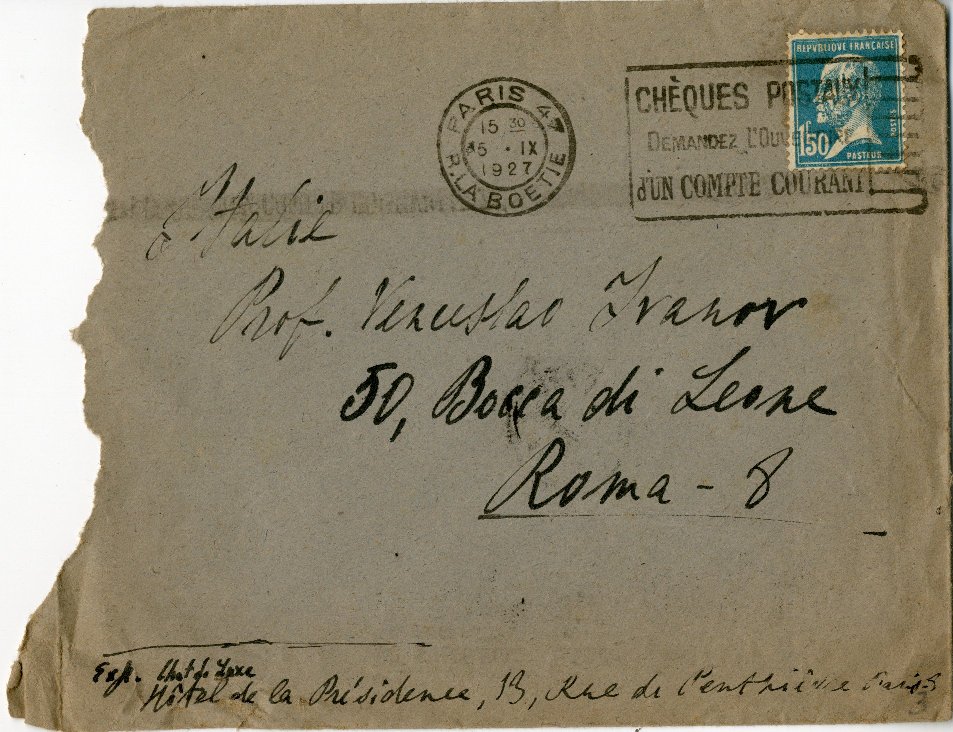 REPVBLIQVE FRANÇAISE
POSTES
1F50
PASTEUR
PARIS 47
15 30
5 · IX
1927
R. LA BOETIE
CHÈQUES POSTAUX
DEMANDEZ L'OUV
D'UN COMPTE COURANT
Italie
Prof. Venceslao Ivanov
50, Bocca di Leone
Roma - 8
Exp.
Hôtel de la Présidence, 13, Rue de Penthièvre Paris-8